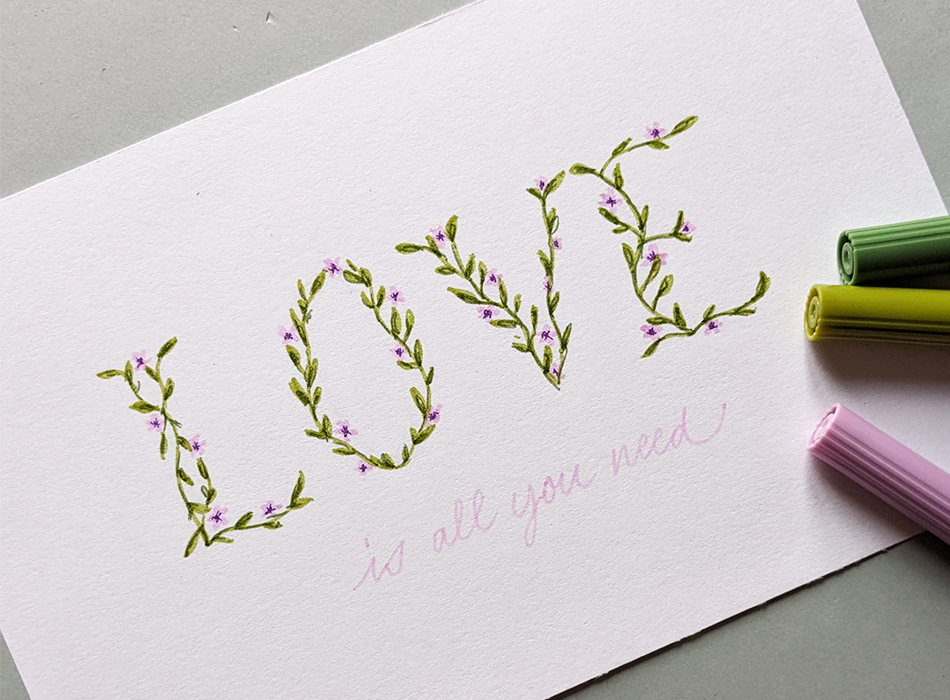 LOVE
is all you need